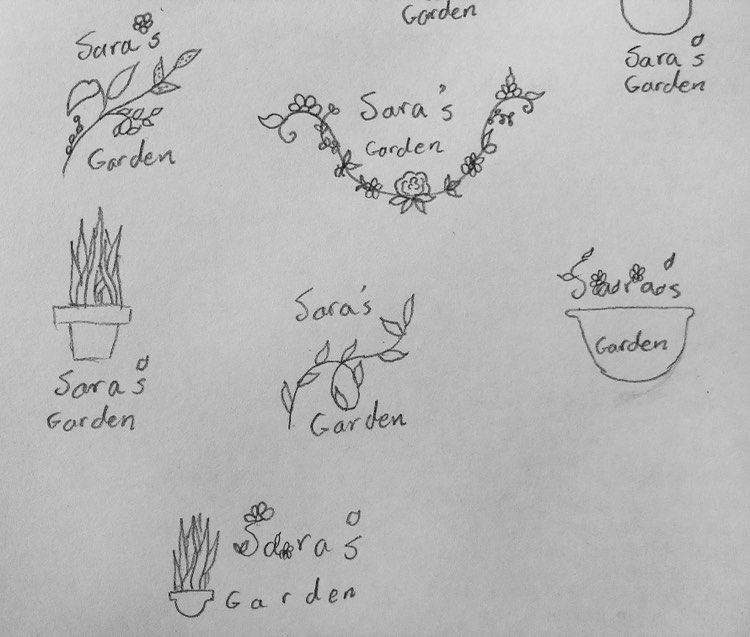 Garden
Sara's
Garden
Sara's
Garden
Sara's
Garden
Sara's
Garden
Sara's
Garden
Sara's
Garden
Sara's
Garden